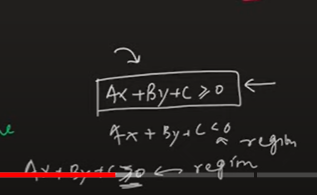 Ax + By + C ≥ 0
Ax + By + C < 0
region
Ax + By + C ≥ 0 ← region